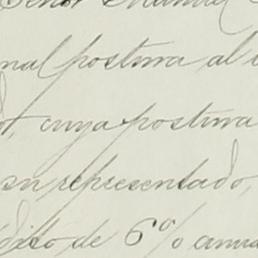 Señor Manuel
nal postura al
cuya postura
su representado,
dito de 6% anua